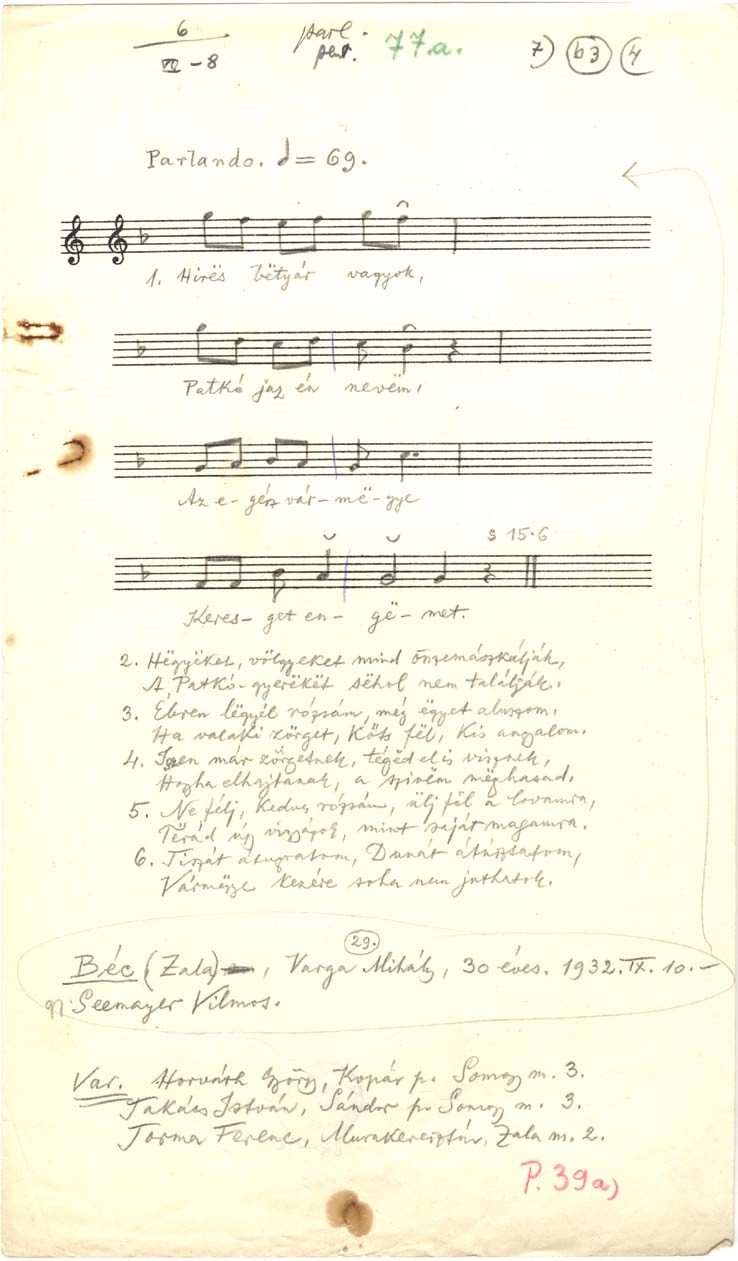 6
VI - 8
parl.
pent.
77a.
7) b3 4
Parlando. = 69.
1. Hirës bëtyár vagyok,
Patkó jaz én nevëm,
Az e - gész vár - më - gye
s 15.6
Keres - get en - gë - met.
2. Hëgyëket, völgyeket mind önzemászkálják,
A Patkó-gyerëkët sëhol nem találják.
3. Ebren lëgyél rózsám, még ëgyet aluszom.
Ha valaki zörget, költs fël, kis angyalom.
4. Iszen már zörgetnek, tégëd el is visznek,
Hogyha elhajtanak, a szivëm mëghasad.
5. Ne félj, kedves rózsám, ülj föl a lovamra,
Tërád úgy vigyázok, mint saját magamra.
6. Tiszát átugratom, Dunát átúsztatom,
Vármëgye kezére soha nem juthatok.
29.
Béc (Zala), Varga Mihály, 30 éves. 1932. IX. 10. -
gy: Seemayer Vilmos.
Var. Horváth György, Kopár p. Somogy m. 3.
Takács István, Sándor p. Somogy m. 3.
Torma Ferenc, Murakeresztúr, Zala m. 2.
P. 39a)